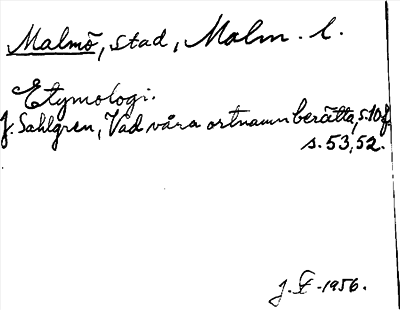 Malmö, stad, Malm. l.
Etymologi.
J. Sahlgren, Vad våra ortnamn berätta, s. 10f
s. 53, 52.
1956.